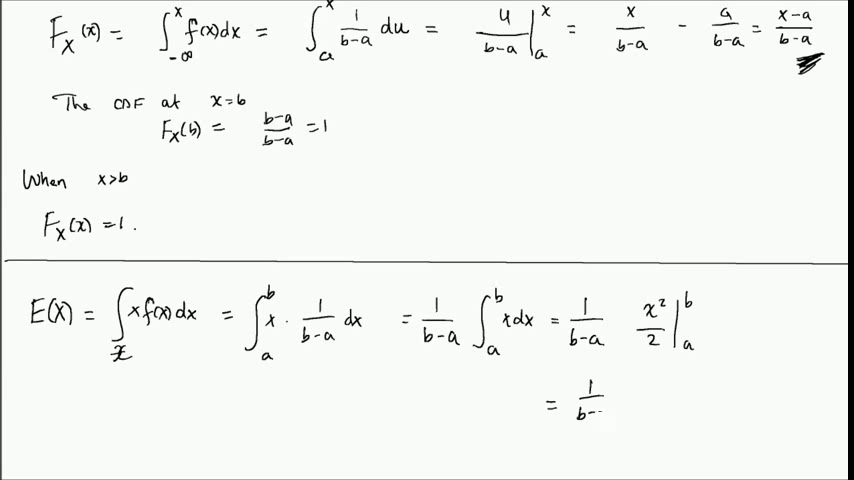 F_X(x) = ∫_{-∞}^{x} f(x)dx = ∫_{a}^{x} \frac{1}{b-a} du = \frac{u}{b-a} |_{a}^{x} = \frac{x}{b-a} - \frac{a}{b-a} = \frac{x-a}{b-a}
The CDF at x=b
F_X(b) = \frac{b-a}{b-a} = 1
When x>b
F_X(x) = 1.
E(X) = ∫_{x} x f(x) dx = ∫_{a}^{b} x · \frac{1}{b-a} dx = \frac{1}{b-a} ∫_{a}^{b} x dx = \frac{1}{b-a} \frac{x^2}{2} |_{a}^{b}
= \frac{1}{b-